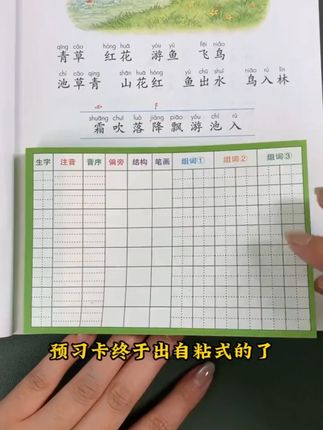 qīng cǎo hóng huā yóu yú fēi niǎo
青草 红花 游鱼 飞鸟
chí cǎo qīng shān huā hóng yú chū shuǐ niǎo rù lín
池草青 山花红 鱼出水 鸟入林
shuāng chuī luò jiàng piāo yóu chí rù
霜吹落降飘游池入
生字 注音 音序 偏旁 结构 笔画 组词① 组词② 组词③
预习卡终于出自粘式的了